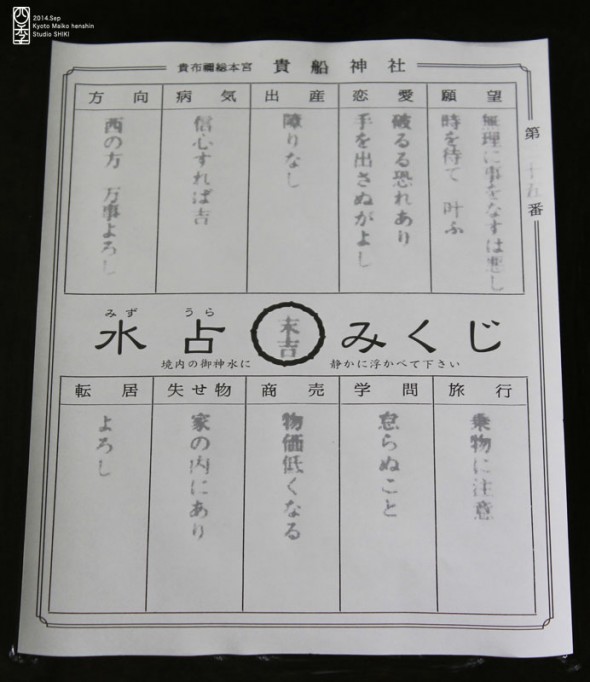 四季
2014.Sep
Kyoto Maiko hanshin
Studio SHIKI
貴布禰総本宮 貴船神社
第 十五番
願望
無理に事をなすは悪し
時を待て 叶ふ
恋愛
破るる恐れあり
手を出さぬがよし
出産
障りなし
病気
信心すれば吉
方向
西の方 万事よろし
みず うら
水占 末吉 みくじ
境内の御神水に 静かに浮かべて下さい
旅行
乗物に注意
学問
怠らぬこと
商売
物価低くなる
失せ物
家の内にあり
転居
よろし